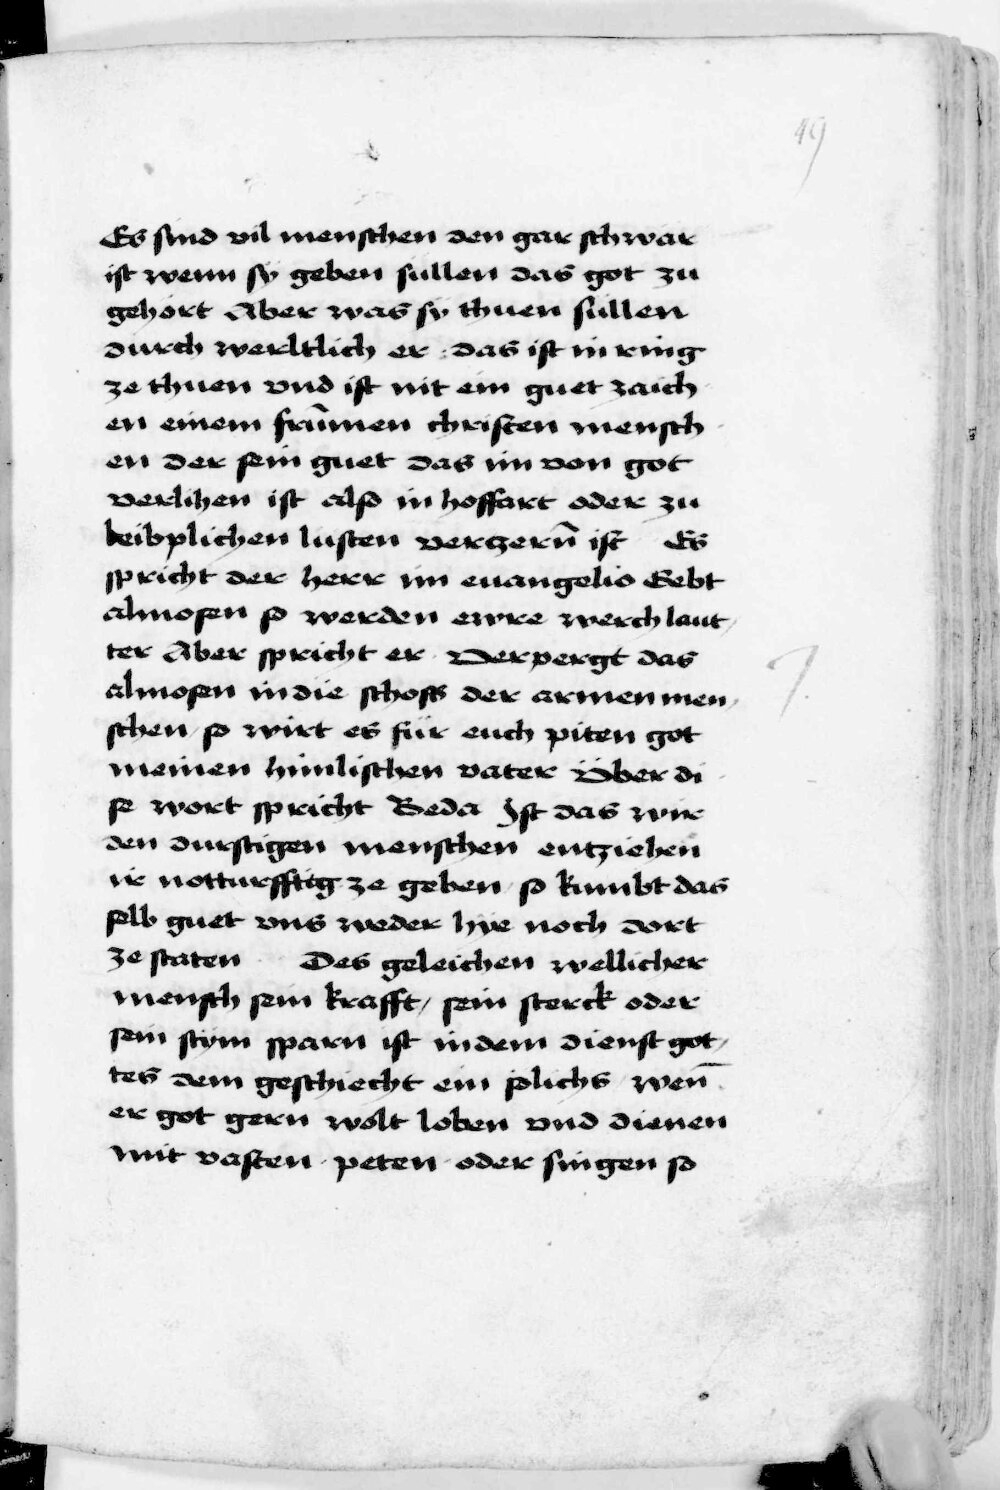 49
Es sind vil menschen den gar schwar
ist wenn sÿ geben sullen das got zu
gehört Aber was sÿ thuen sullen
durch werltlich er · das ist in ring
ze thuen vnd ist nit ein guet zaich
en einem frūmen christen mensch
en der sein guet das im von got
verlihen ist also in hoffart oder zu
leibplichen lusten verzern̄ ist Es
spricht der herr im euangelio Gebt
almosen so werden ewre werch laut/
ter Aber spricht er · Verpergt das
almosen in die schoss der armen men/
schen / so wirt es für euch piten got
meinen himlischen vater Über di
se wort spricht Beda Jst das wir
den durstigen menschen entziehen
ir notturfftig ze geben / so kumbt das
selb guet vns weder hÿe noch dort
ze staten Des geleichen wellicher
mensch sein krafft / sein sterck oder
sein stÿm sparn ist in dem dienst got/
tes dem geschiecht ein solichs / wen̄
er got gern wolt loben vnd dienen
mit vasten · peten · oder singen so